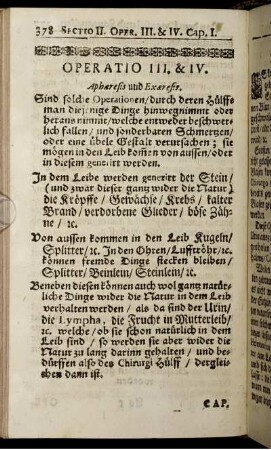 378 SECTIO II. OPER. III. & IV. CAP. I.
OPERATIO III. & IV.
Aphæresis und Exæresis.
Sind solche Operationen / durch deren Hülff
man diejenige Dinge hinwegnimmt oder
heraus nimmt / welche entweder beschwer-
lich fallen / und sonderbaren Schmertzen /
oder eine übele Gestalt verursachen; sie
mögen in den Leib kommen von aussen / oder
in diesem generirt werden.
In dem Leibe werden generirt der Stein /
(und zwar dieser gantz wider die Natur)
die Kröpffe / Gewächse / Krebs / kalter
Brand / verdorbene Glieder / böse Zäh-
ne / ꝛc.
Von aussen kommen in den Leib Kugeln /
Splitter / ꝛc. In den Ohren / Lufftröhr / ꝛc.
können fremde Dinge stecken bleiben /
Splitter / Beinlein / Steinlein / ꝛc.
Beneben diesen können auch wol gantz natür-
liche Dinge wider die Natur in dem Leib
verhalten werden / als da sind der Urin /
die Lympha, die Frucht in Mutterleib /
ꝛc. welche / ob sie schon natürlich in dem
Leib sind / so werden sie aber wider die
Natur zu lang darinn gehalten / und be-
dürffen also des Chirurgi Hülff / derglei-
chen dann ist.
CAP.